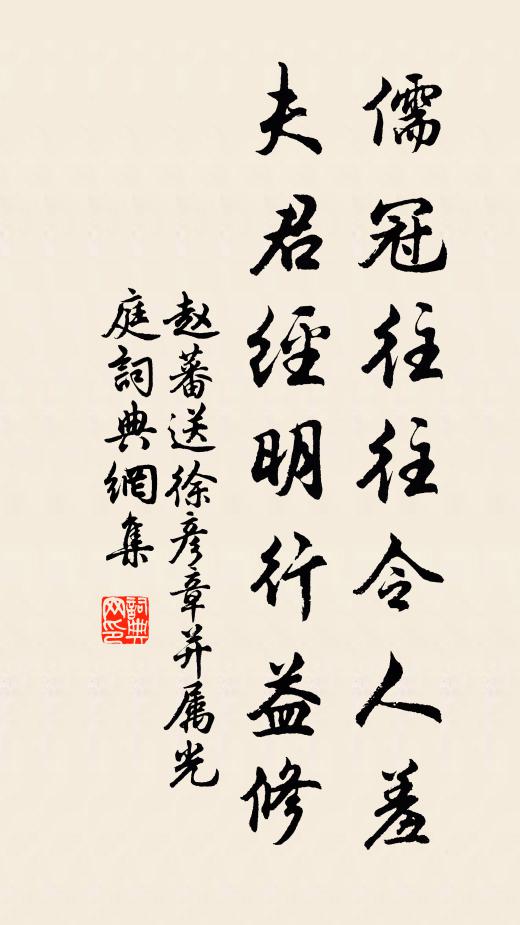 儒冠往往令人羞
夫君經明行益修
赵蕃送徐彦章并属光
庭詞典網集
詞典网印